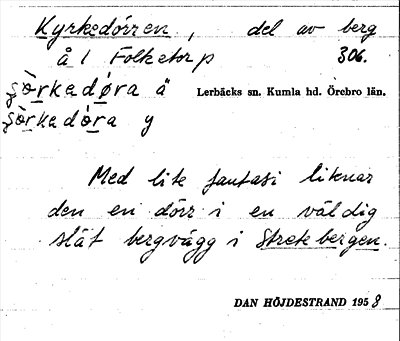 Kyrkedörren, del av berg
å 1 Folketorp 306.
ʂörkedøra ä Lerbäcks sn. Kumla hd. Örebro län.
ʂörkadöra y
Med lite fantasi liknar
den en dörr i en väldig
slät bergvägg i Stretebergen.
DAN HÖJDESTRAND 1958